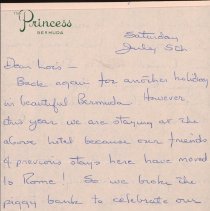 The
Princess
BERMUDA
Saturday
July 5th
Dear Lois -
Back again for another holiday
in beautiful Bermuda. However,
this year we are staying at the
above hotel because our friends
& previous stays here have moved
to Rome! So we broke the
piggy bank to celebrate our